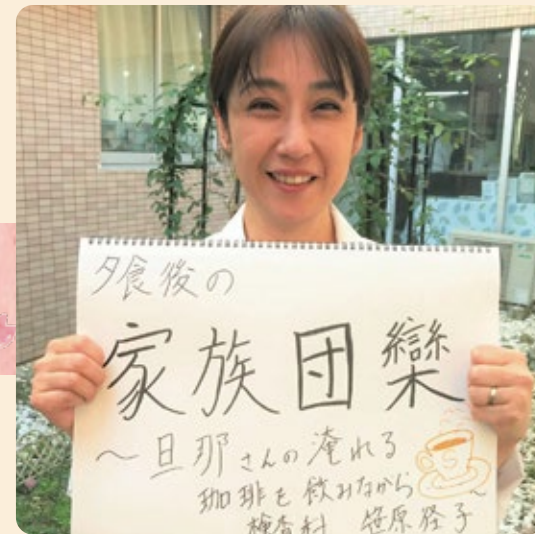 夕食後の
家族団欒
～旦那さんの淹れる
珈琲を飲みながら～
検査科 笹原